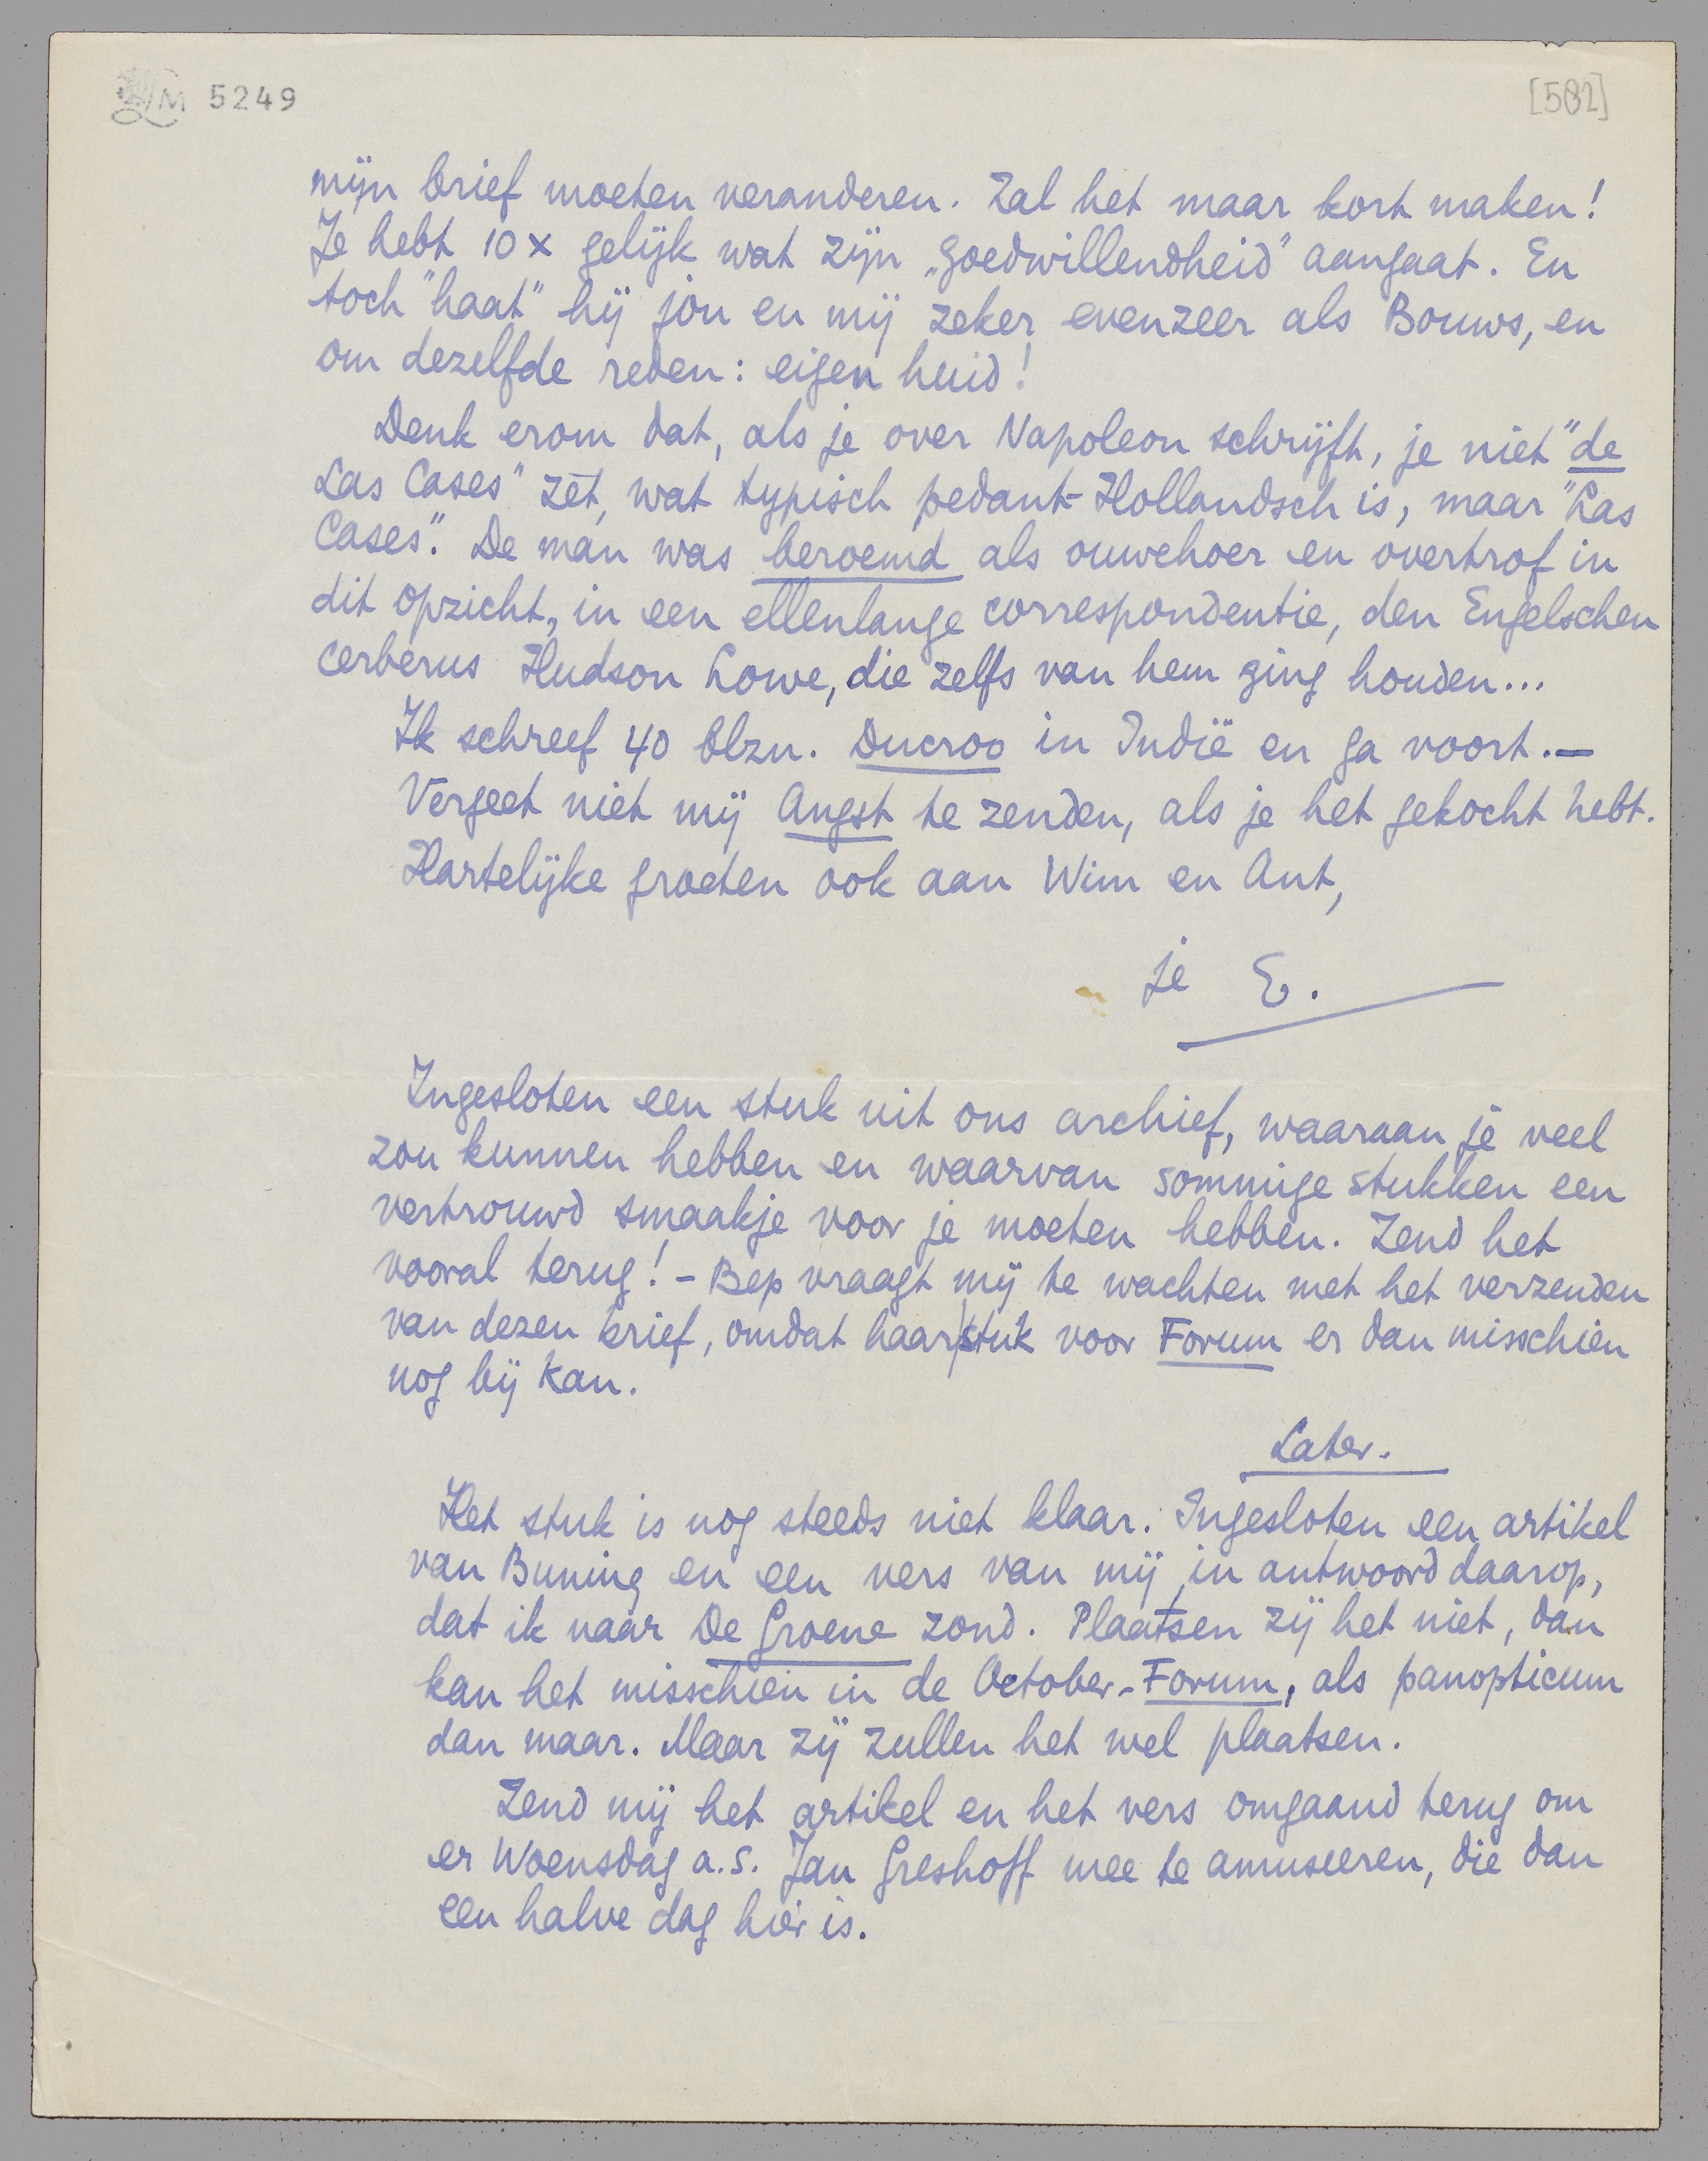 LM 5249
[582]
mijn brief moeten veranderen. Zal het maar kort maken!
Je hebt 10 x gelijk wat zijn „goedwillendheid" aangaat. En
toch "haat" hij jou en mij zeker evenzeer als Bouws, en
om dezelfde reden: eigen huid!
Denk erom dat, als je over Napoleon schrijft, je niet "de
Las Cases" zet, wat typisch pedant-Hollandsch is, maar "Las
Cases". De man was beroemd als ouwehoer en overtrof in
dit opzicht, in een ellenlange correspondentie, den Engelschen
cerberus Hudson Lowe, die zelfs van hem ging houden...
Ik schreef 40 blzn. Ducroo in Indië en ga voort.—
Vergeet niet mij Angst te zenden, als je het gekocht hebt.
Hartelijke groeten ook aan Wim en Ant,
je E.
Ingesloten een stuk uit ons archief, waaraan je veel
zou kunnen hebben en waarvan sommige stukken een
vertrouwd smaakje voor je moeten hebben. Zend het
vooral terug! – Bep vraagt mij te wachten met het verzenden
van dezen brief, omdat haar stuk voor Forum er dan misschien
nog bij kan.
Later.
Het stuk is nog steeds niet klaar. Ingesloten een artikel
van Buning en een vers van mij, in antwoord daarop,
dat ik naar De Groene zond. Plaatsen zij het niet, dan
kan het misschien in de October-Forum, als panopticum
dan maar. Maar zij zullen het wel plaatsen.
Zend mij het artikel en het vers omgaand terug om
er Woensdag a.s. Jan Greshoff mee te amuseeren, die dan
een halve dag hier is.